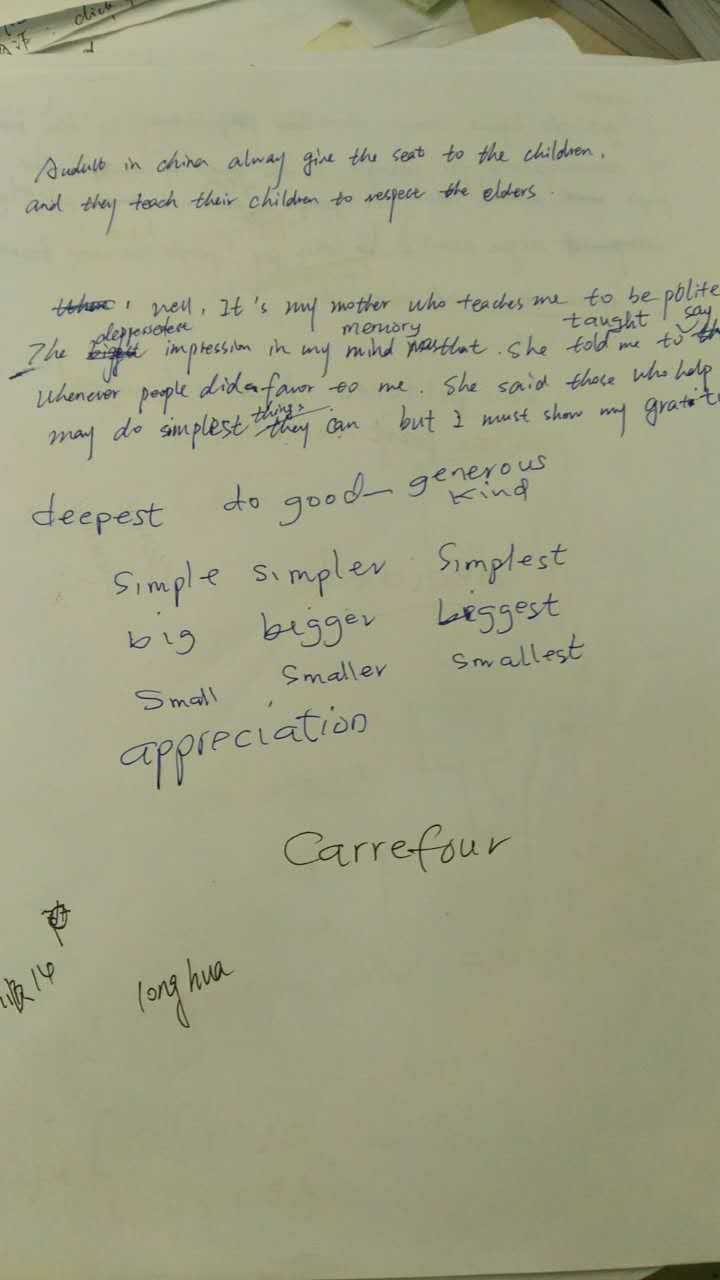 click
Audult in china alway give the seat to the children,
and they teach their children to respect the elders.
well, It's my mother who teaches me to be polite
memory taught say
The impression in my mind that. She told me to
Whenever people did a favor to me. She said those who help
things
may do simplest they can but I must show my
deepest do good — generous
kind
Simple simpler Simplest
big bigger biggest
Small Smaller smallest
appreciation
Carrefour
14
longhua